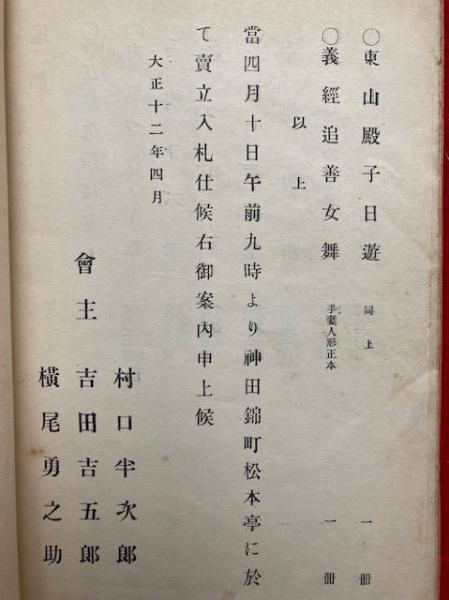 〇東山殿子日遊 同上 一冊
〇義經追善女舞 手妻人形正本 一冊
以上
當四月十日午前九時より神田錦町松本亭に於
て賣立入札仕候右御案內申上候
大正十二年四月
村口半次郎
會主 吉田吉五郎
橫尾勇之助